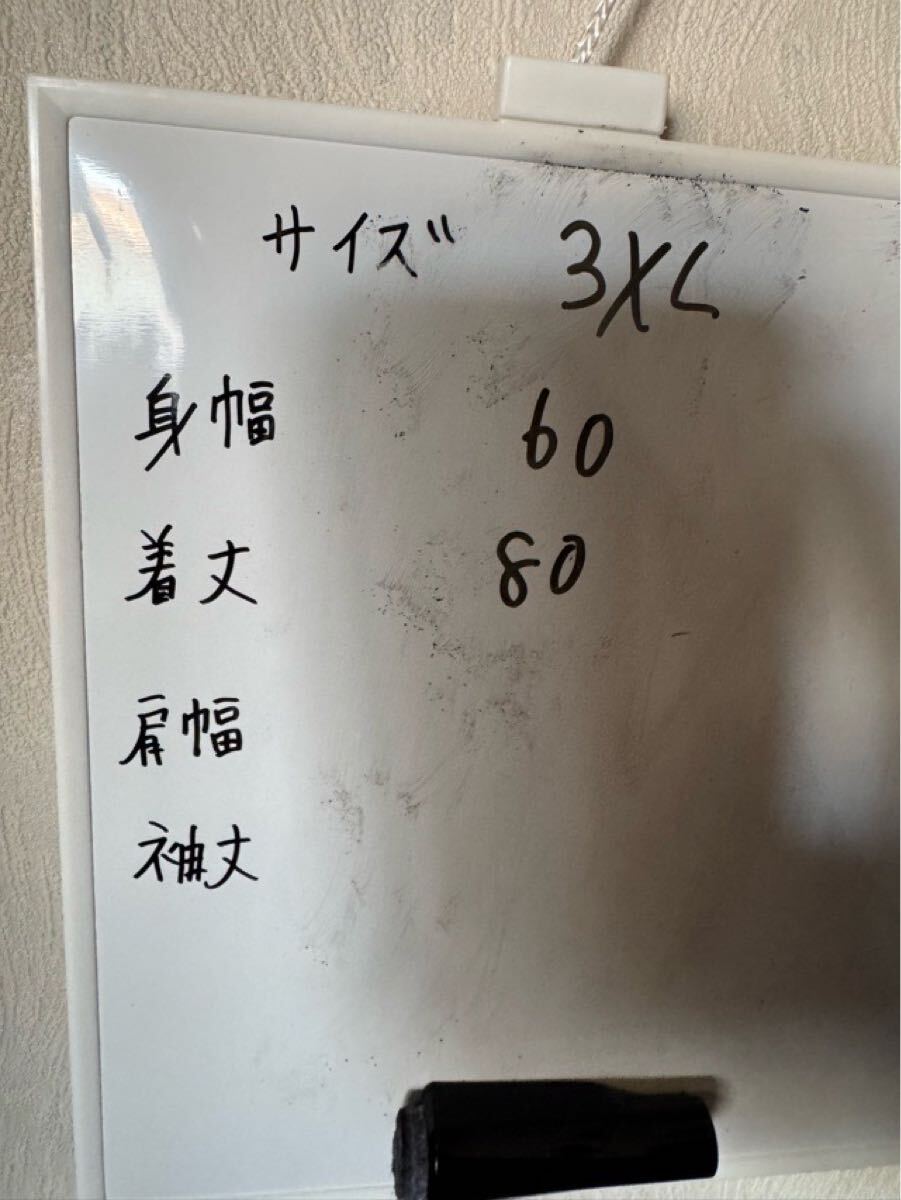 サイズ 3XL
身幅 60
着丈 80
肩幅
袖丈